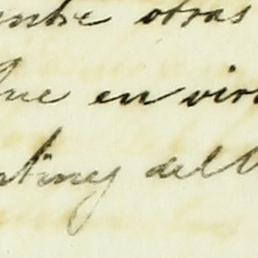 entre otras
que en vir
rtinez del V